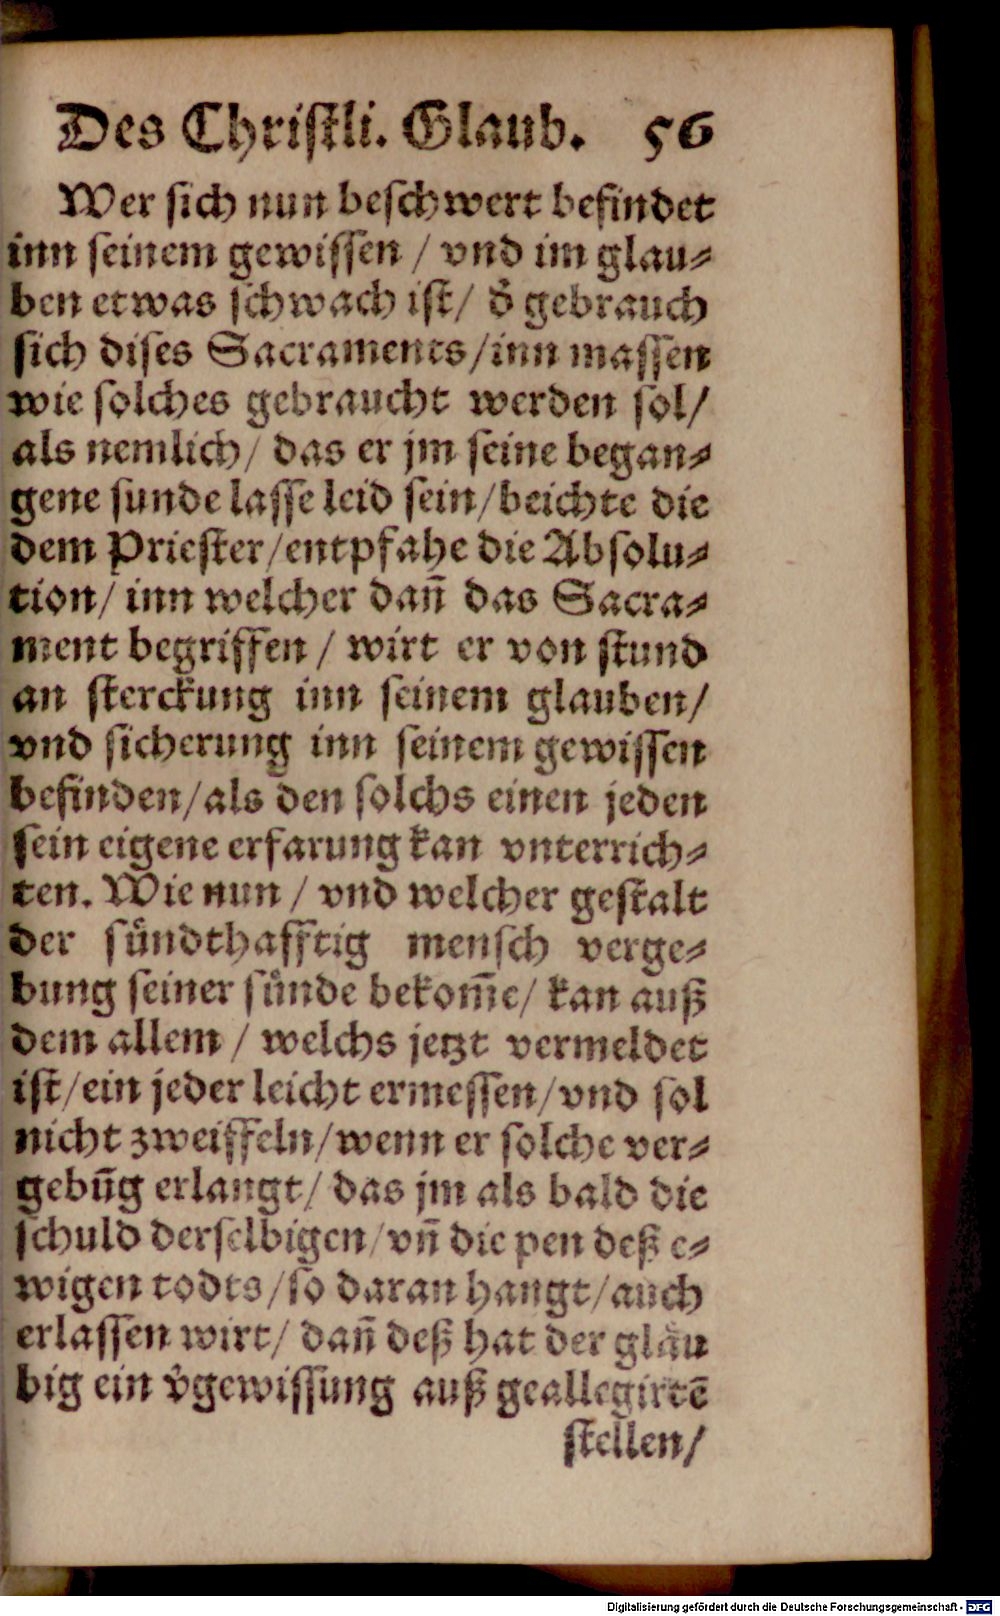 Des Christli. Glaub. 56
Wer sich nun beschwert befindet
inn seinem gewissen / vnd im glau⸗
ben etwas schwach ist / d̓ gebrauch
sich dises Sacraments / inn massen
wie solches gebraucht werden sol /
als nemlich / das er jm seine began⸗
gene sunde lasse leid sein / beichte die
dem Priester / entpfahe die Absolu⸗
tion / inn welcher dañ das Sacra⸗
ment begriffen / wirt er von stund
an sterckung inn seinem glauben /
vnd sicherung inn seinem gewissen
befinden / als den solchs einen jeden
sein eigene erfarung kan vnterrich⸗
ten. Wie nun / vnd welcher gestalt
der sündthafftig mensch verge⸗
bung seiner sünde bekom̃e / kan auß
dem allem / welchs jetzt vermeldet
ist / ein jeder leicht ermessen / vnd sol
nicht zweiffeln / wenn er solche ver⸗
gebũg erlangt / das jm als bald die
schuld derselbigen / vñ die pen deß e⸗
wigen todts / so daran hangt / auch
erlassen wirt / dañ deß hat der gläu
big ein v̓gewissung auß geallegirtē
stellen /
Digitalisierung gefördert durch die Deutsche Forschungsgemeinschaft - DFG